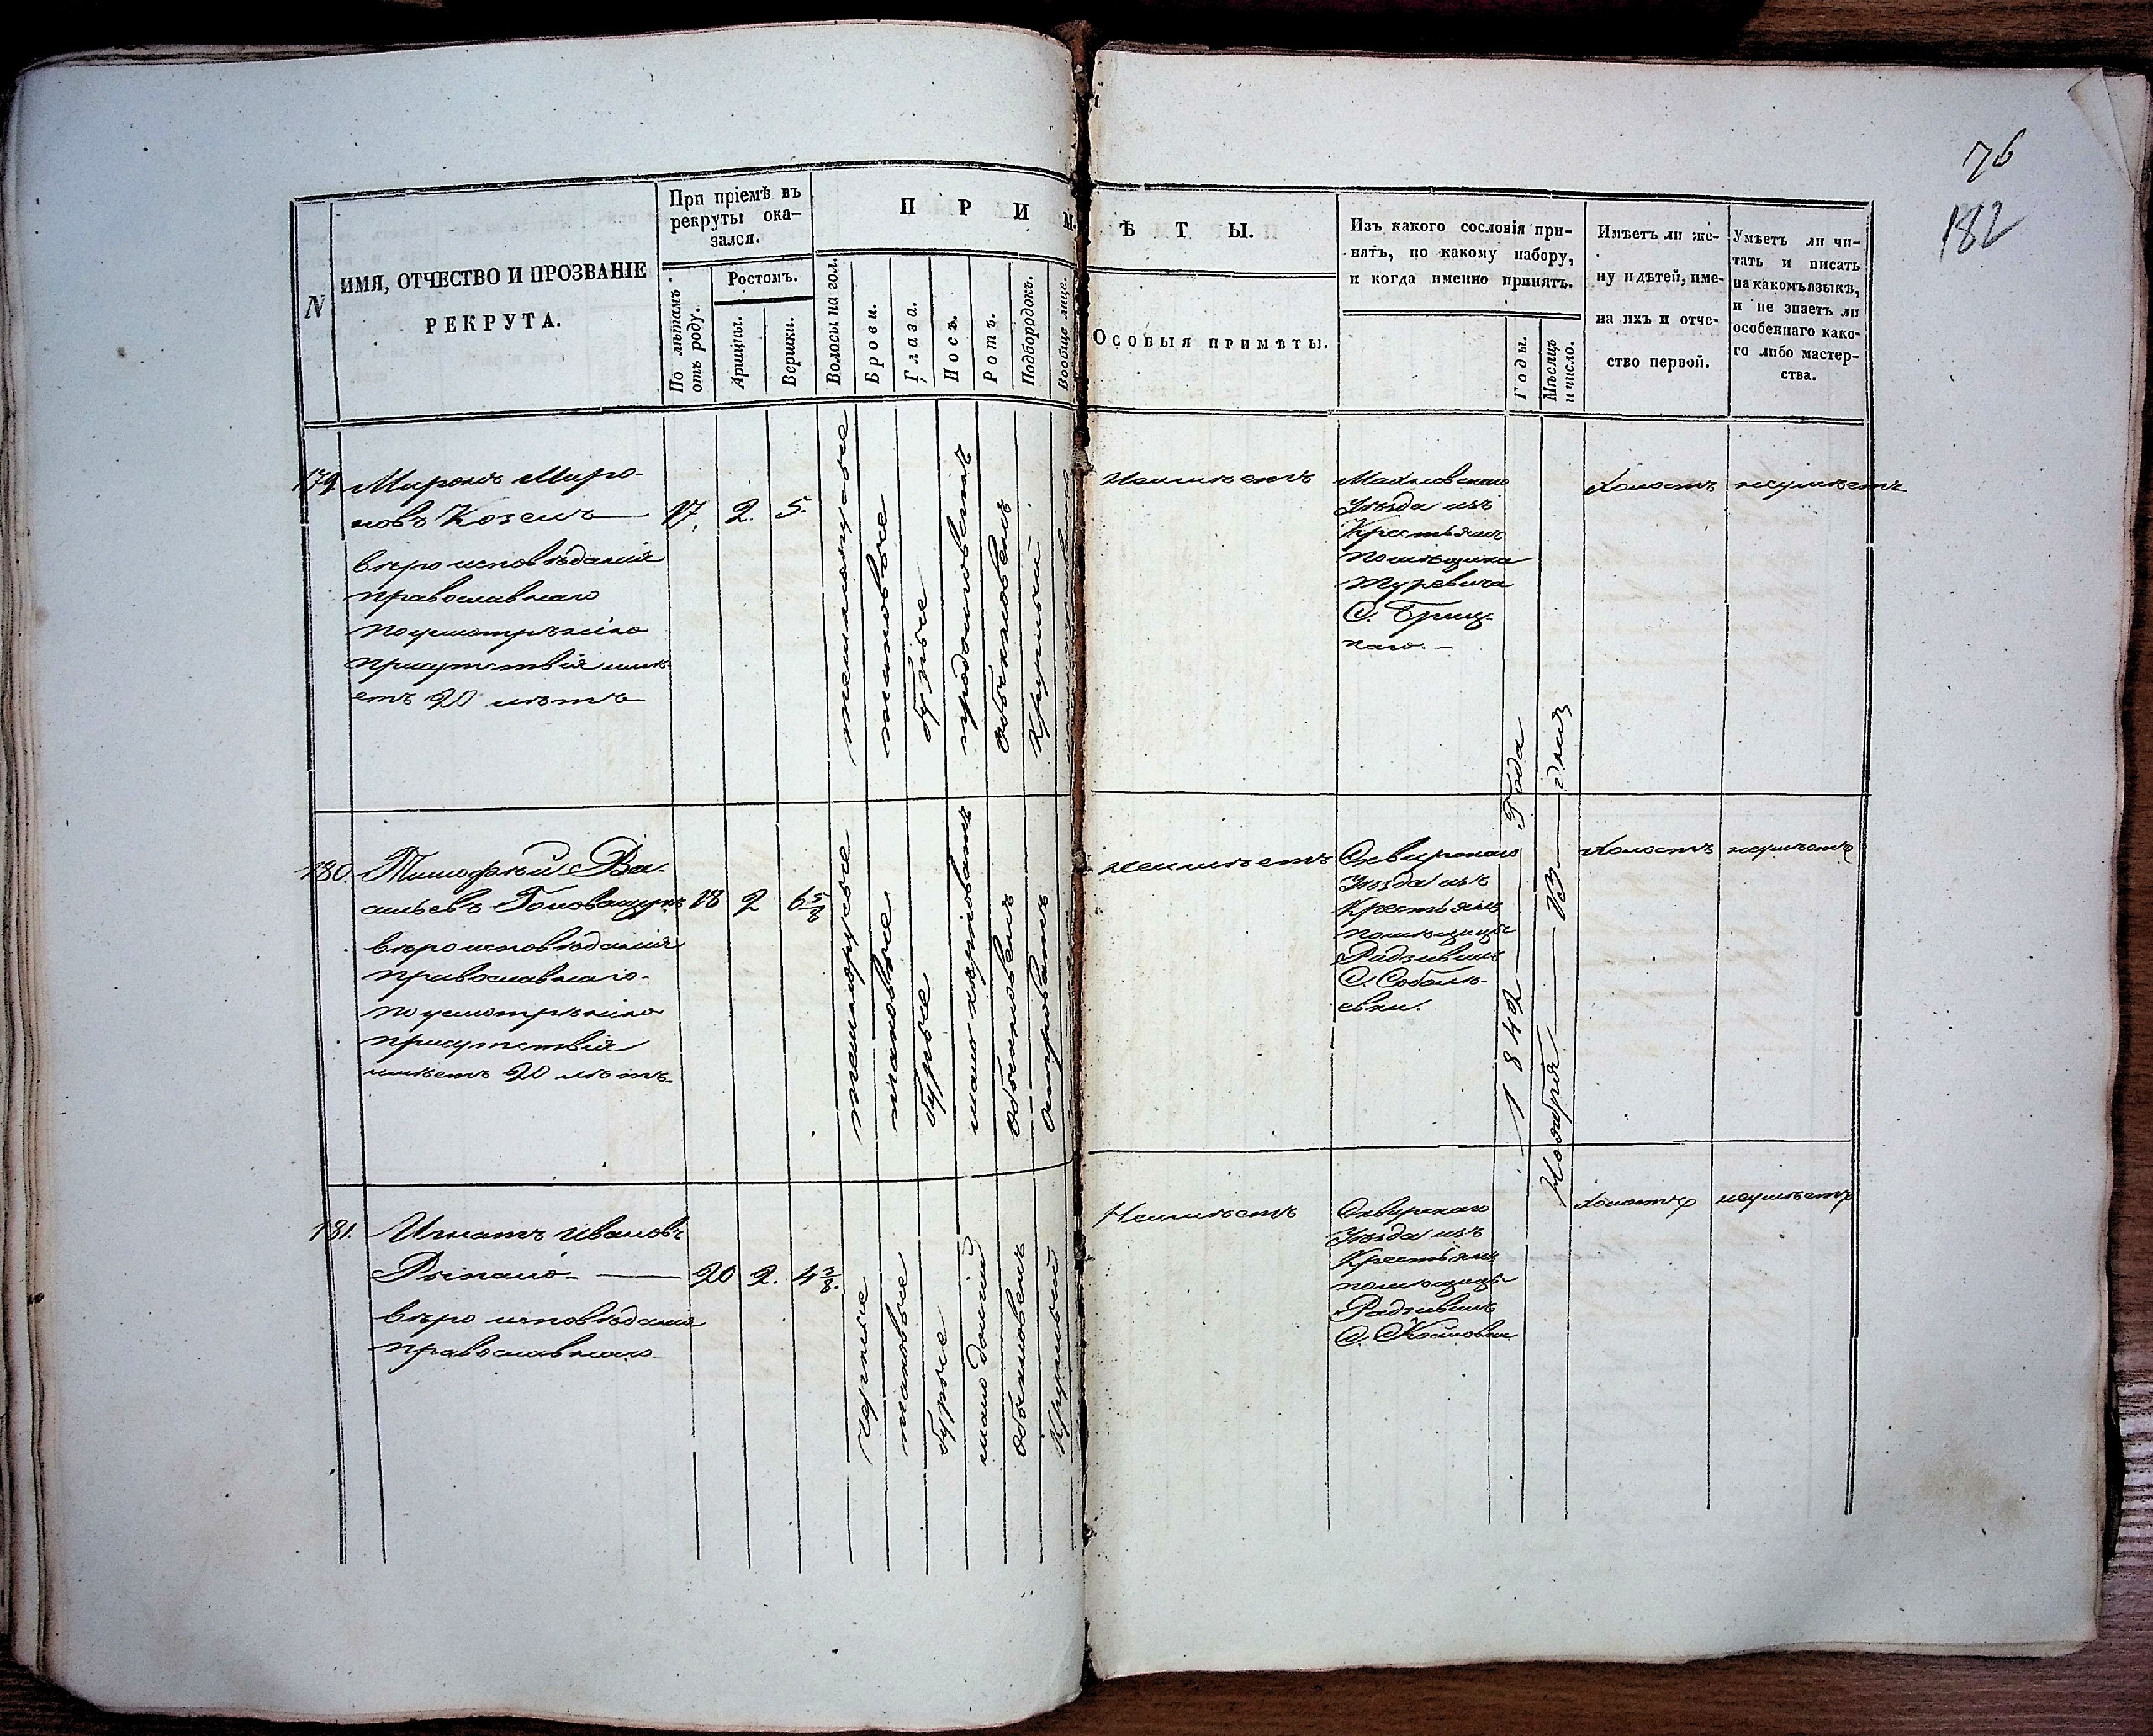 76
182
N
ИМЯ, ОТЧЕСТВО И ПРОЗВАНІЕ
РЕКРУТА.
При пріемѣ въ
рекруты ока-
зался.
По лѣтамъ
отъ роду.
Ростомъ.
Аршины.
Вершки.
П Р И М
Волосы на гол.
Брови.
Глаза.
Носъ.
Ротъ.
Подбородокъ.
Вообще лице.
Ѣ Т Ы.
ОСОБЫЯ ПРИМѢТЫ.
Изъ какого сословія при-
нятъ, по какому набору,
и когда именно принятъ.
Годы.
Мѣсяцъ
и число.
Имѣетъ ли же-
ну и дѣтей, име-
на ихъ и отче-
ство первой.
Умѣетъ ли чи-
тать и писать
на какомъ языкѣ,
и не знаетъ ли
особеннаго како-
го либо мастер-
ства.
179.
Миронъ Миро-
новъ Козелъ
вѣроисповѣданія
православнаго
по усмотрѣнію
присутствія имѣ-
етъ 20 лѣтъ
17.
2.
5.
темнорусые
таковые
бурые
продолговатъ
обыкновенъ
Круглый
Неимѣетъ
Махновскаго
Уѣзда изъ
Крестьянъ
помѣщика
С.
Холостъ
неумѣетъ
180.
Тимофей Ва-
сильевъ
вѣроисповѣданія
православнаго
по усмотрѣнію
присутствія
имѣетъ 20 лѣтъ
18
2
6 5/8
темнорусые
таковые
бурые
обыкновенъ
неимѣетъ
Сквирскаго
Уѣзда изъ
Крестьянъ
помѣщицы
Радзивилъ
С. Соболѣ-
евки.
1842 Года
Ноября 13 дня
Холостъ
неумѣетъ
181.
Игнатъ Ивановъ
вѣроисповѣданія
православнаго
20
2.
4 3/8.
черные
таковые
бурые
мало долгій
обыкновенъ
Круглый
Неимѣетъ
Сквирскаго
Уѣзда изъ
Крестьянъ
помѣщицы
Радзивилъ
С.
Холостъ
неумѣетъ